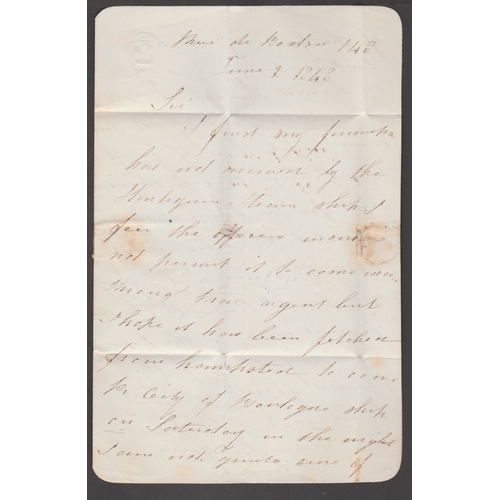 Rue de Boston 148
June 2 1848
Sir
I find my furniture
has not arrived by the
Harlequin steam ship I
fear the officers
not permit it to come
than urgent but
I hope it has been fetched
from hempsted to come
pr City of Boulogne ship
on Saturday in the night
I am not quite sure of